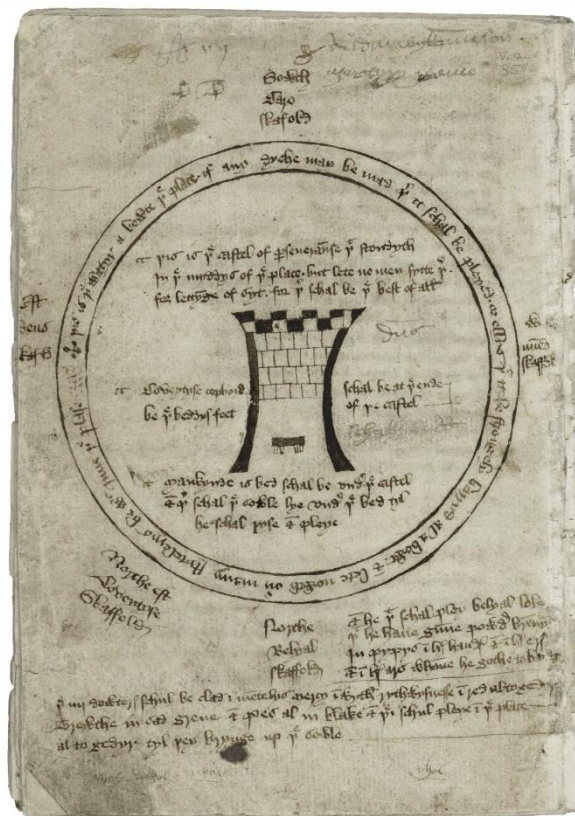 Sowth
Caro
skafold
þis is þe watyr a bowte þe place if any dyche may be mad þer it schal be pleyed or ellys þat it be strongely barryd al a bowt & lete nowth ouer many stytelerys be wyth inne þe plase
þis is þe castel of perseueraunse þat stondyth
in þe myddys of þe place but lete no men sytte þer
for lettynge of syt for þer schal be þe best of all
Est
deus
skafold
W
mund
skaffold
Coveytyse copbord schal be at þe ende
be þe beddys feet of þe castel
Mankynde is bed schal be vndyr þe castel
& þer schal þe sowle lye vndyr þe bed tyl
he schal ryse & pleye
Northe est
Coveytyse
Skaffold
Northe
Belyal
skaffold
& he þat schal pley belyal loke
þat he haue gunne powdyr brennyng
In pypys in hys handys & in hys erys
& in hys ars whanne he gothe to
þe iiij dowterys schul be clad in metelys mercy in wyth rythwysnesse in red altogedyr
Trewthe in sad grene & pes al in blake & þei schul pleye in þe place
al to gedyr tyl þey brynge up þe sowle